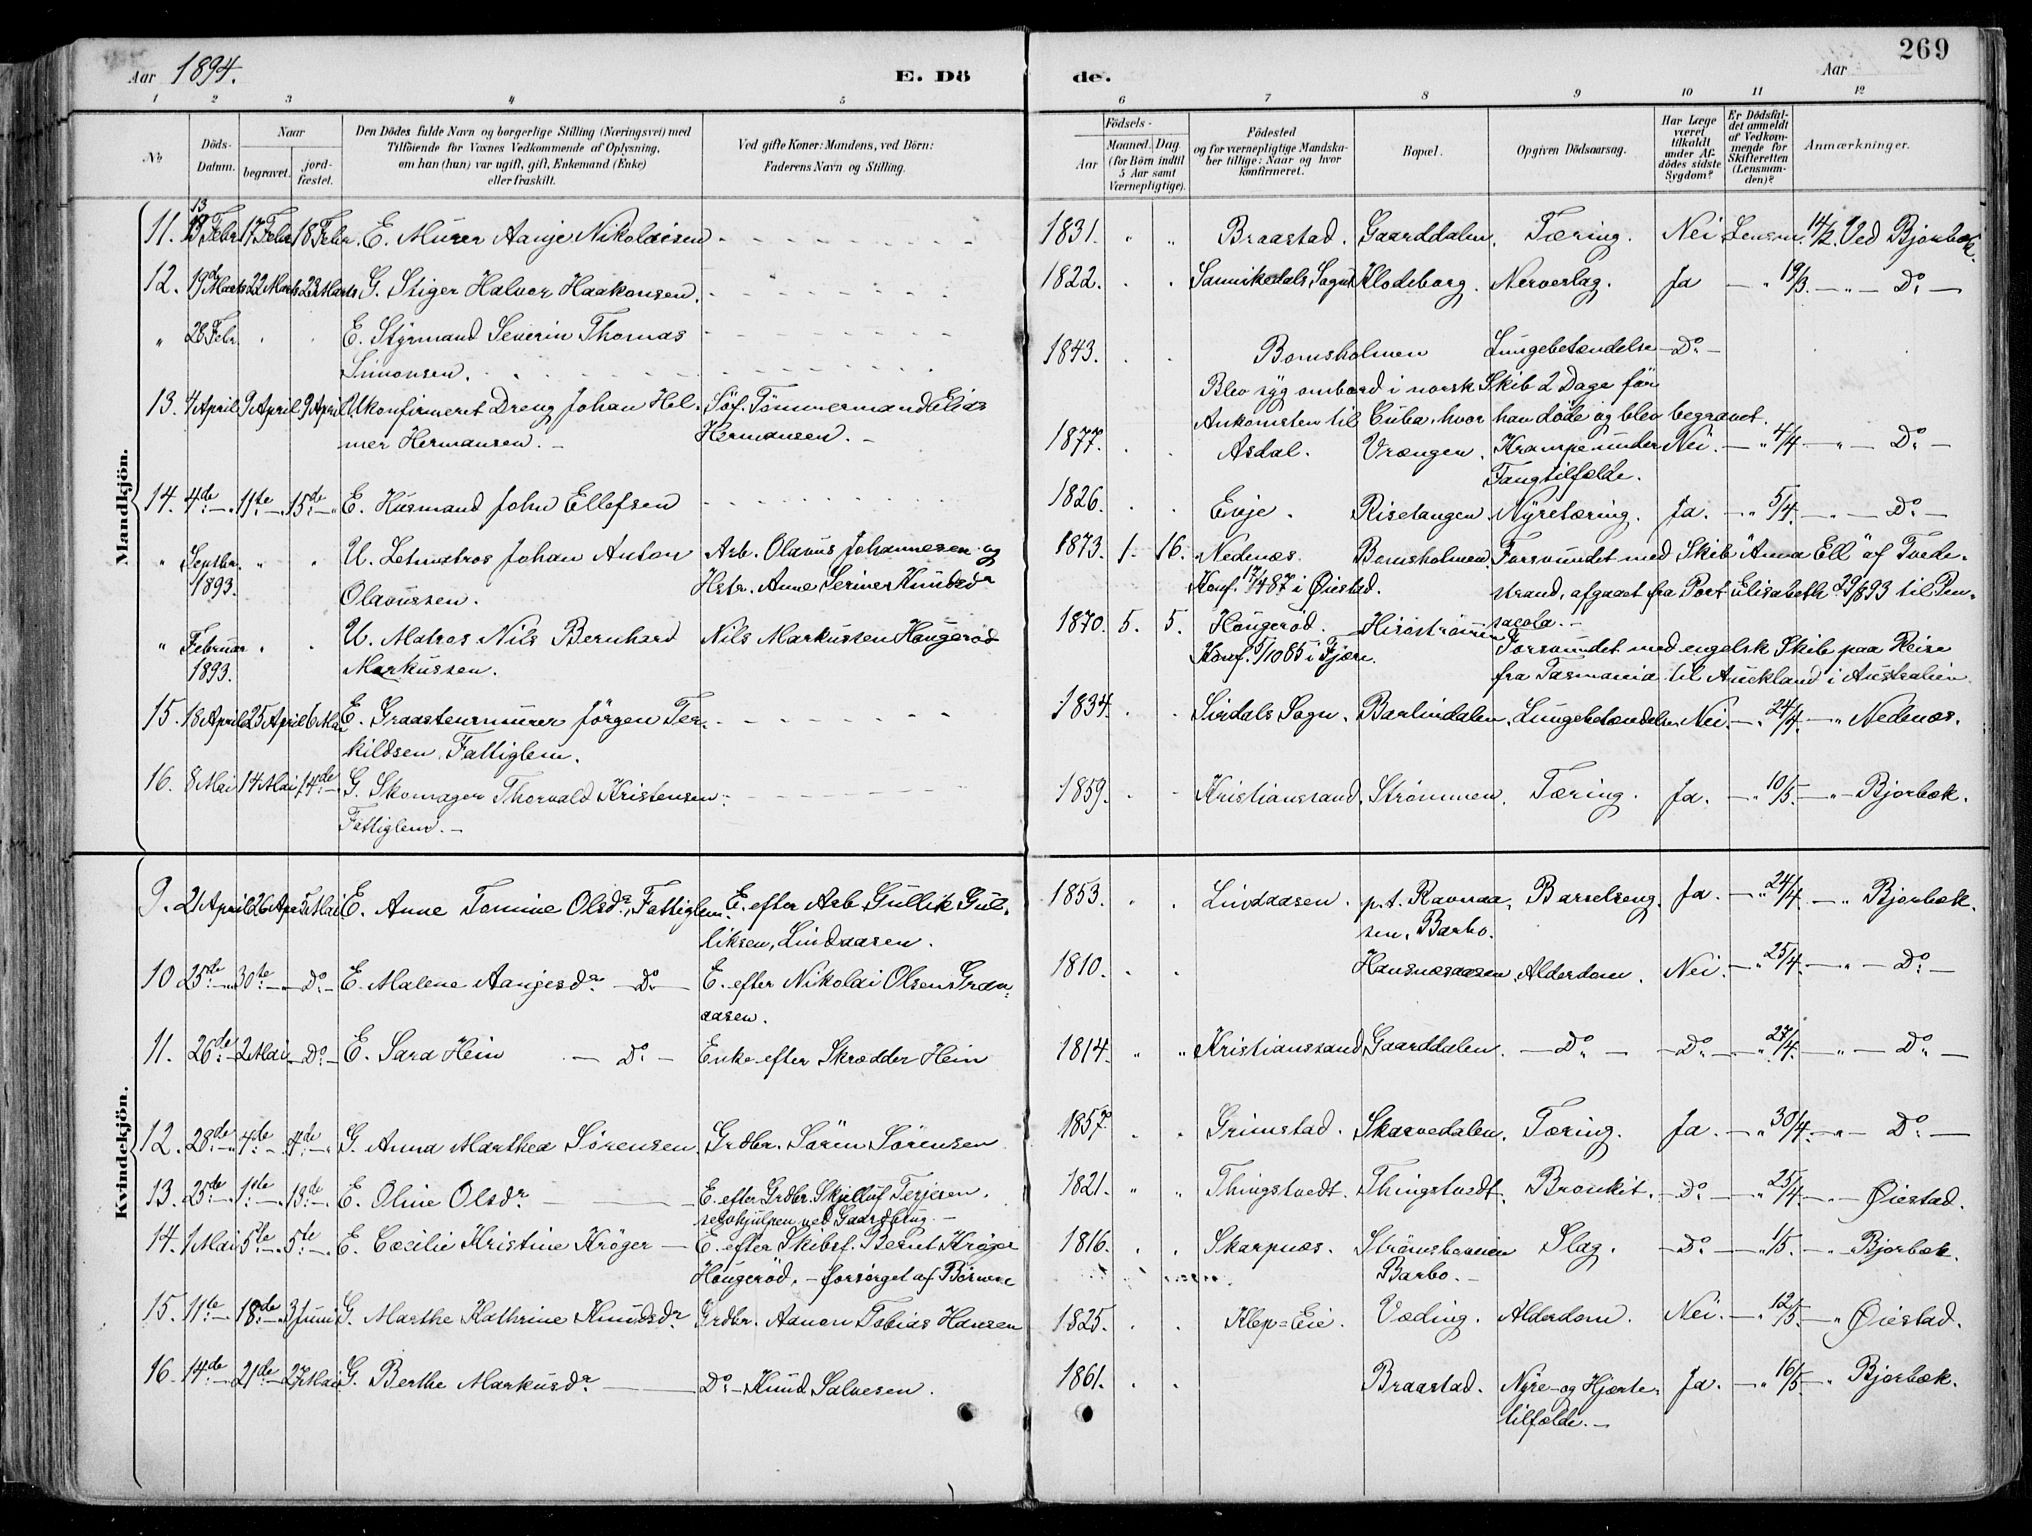 269
Aar 1894. E. Dö de. Aar
1 2 3 4 5 6 7 8 9 10 11 12
No Döds-Datum. Naar begravet. jord-fæstet. Den Dödes fulde Navn og borgerlige Stilling (Næringsvei) med Tilföiende for Voxnes Vedkommende af Oplysning, om han (hun) var ugift, gift, Enkemand (Enke) eller fraskilt. Ved gifte Koner: Mandens, ved Börn: Faderens Navn og Stilling. Födsels- Aar Maaned. Dag. (for Börn indtil 5 Aar samt Værnepligtige). Födested og for værnepligtige Mandskaber tillige: Naar og hvor konfirmeret. Bopæl. Opgiven Dödsaarsag. Har Læge været tilkaldt under Afdödes sidste Sygdom? Er Dödsfaldet anmeldt af Vedkommende for Skifteretten (Lensmanden)? Anmærkninger.
Mandkjön.
11. 13 Febr 17 Febr 18 Febr. E. Murer Aanje Nikolaisen 1831. " " Braastad. Gaarddalen. Tæring. Nei Lensm. 14/2. Ved Bjorbæk.
12. 19de Marts 22 Marts 23 Marts G. Stiger Halvor Haakonsen. 1822. Sannikedals Sogn Klodeborg. Nerveslag. Ja — " 19/3. — " — Do —
" 28 Febr. E. Styrmand Severin Thomas 1843. Bomsholmen Lungebetændelse — Do —
Simonsen. Blev syg ombord i norsk Skib 2 Dage før
Ankomsten til Cuba, hvor han døde og blev begravet.
13. 4 April 9 April 9 April Ukonfirmeret Dreng Johan Hel- Søf. Tømmermand Elias
mer Hermansen. — Hermansen. — 1877. Asdal. Vrængen. Krampe under Nei. — " 4/4 — " — Do —
Fangtilfælde.
14. 4de — " 11te — " 15de — " E. Husmand John Ellefsen 1826. Evje. Risetangen. Nyretæring. Ja. — " 5/4. — " — Do —
" Septbr. 1893. " U. Letmatros Johan Anton Arb. Olavus Johannesen og 1873. 1. 16. Nedenæs. Bomsholmen. Forsvundet med Skib "Anna Ell" af Tvede-
Olavussen. Hstr. Anne Serine Knudsdr Konf. 17/4 87 i Øiestad. strand, afgaaet fra Port Elisabeth 29/8 93 til Pen-
sacola. —
" Februar 1893. " U. Matros Nils Bernhard Nils Markussen Hougerød 1870. 5. 5. Hougerød. Hisøstrømmen Forsvundet med engelsk Skib paa Reise
Markussen. Konf. 5/10 85 i Fjære. fra Tasmania til Auckland i Australien.
15. 18 April 25 April 6 Mai E. Graastensmurer Jørgen Ter- 1834. Sirdals Sogn. Barlindalen. Lungebetændelse Nei. — " 24/4. — " Nedenæs.
kildsen. Fattiglem.
16. 8 Mai 14 Mai 14de — " G. Skomager Thorvald Kristensen 1859. Kristianssand. Strømmen. Tæring. Ja. — " 10/5. — " — Bjorbæk.
Fattiglem. —
Kvindekjön.
9. 21 April 26 Apr 5 Mai E. Anne Tomine Olsdr, Fattiglem. E. efter Arb. Gullik Gul- 1853. Lindaasen. p.t. Ravnaa- Barselseng. Ja. — " 24/4 — " Bjorbæk.
liksen, Lindaasen. sen, Barbo.
10 25de — " 30te — " — Do — E. Malene Aanjesdr — Do — E. efter Nikolai Olsen Gran- 1810. Hansnæsaasen. Alderdom. Nei. — " 25/4. — " — Do —
aasen.
11. 26de — " 2 Mai — Do — E. Sara Hein — Do — Enke efter Skrædder Hein 1814. " " Kristianssand Gaarddalen. — Do — — Do — — " 27/4. — " — Do —
12. 28de — " 4de — " 4de — " G. Anna Marthea Sørensen. Grdbr. Søren Sørensen 1857. Grimstad. Skarvedalen. Tæring. Ja. — " 30/4. — " — Do —
13. 25de — " 1ste — " 13de — " E. Oline Olsdr — E. efter Grdbr. Skjelluf Terjesen, 1821. " " Thingstvedt. Thingstvedt. Bronkit. — Do — — " 25/4. — " Øiestad.
selvhjulpen ved Gaardbrug. —
14. 1 Mai 5te — " 5te — " E. Cecilie Kristine Krøger — E. efter Skibsf. Bernt Krøger 1816. Skarpnæs. Strømsbuneien Slag. — Do — — " 1/5. — " Bjorbæk.
Hougerød. — forsørget af Børnene Barbo. —
15. 11te — " 18de — " 3 Juni G. Marthe Kathrine Knudsdr Grdbr. Aanon Tobias Hansen 1825. Klep-Eie. Væding. Alderdom. Nei. — " 12/5. — " Øiestad.
16. 14de — " 21de — " 27 Mai G. Berthe Markusdr — Do — Knud Salvesen. 1861. Braastad. Nyre- og Hjerte- Ja. — " 16/5. — " Bjorbæk.
tilfælde. —